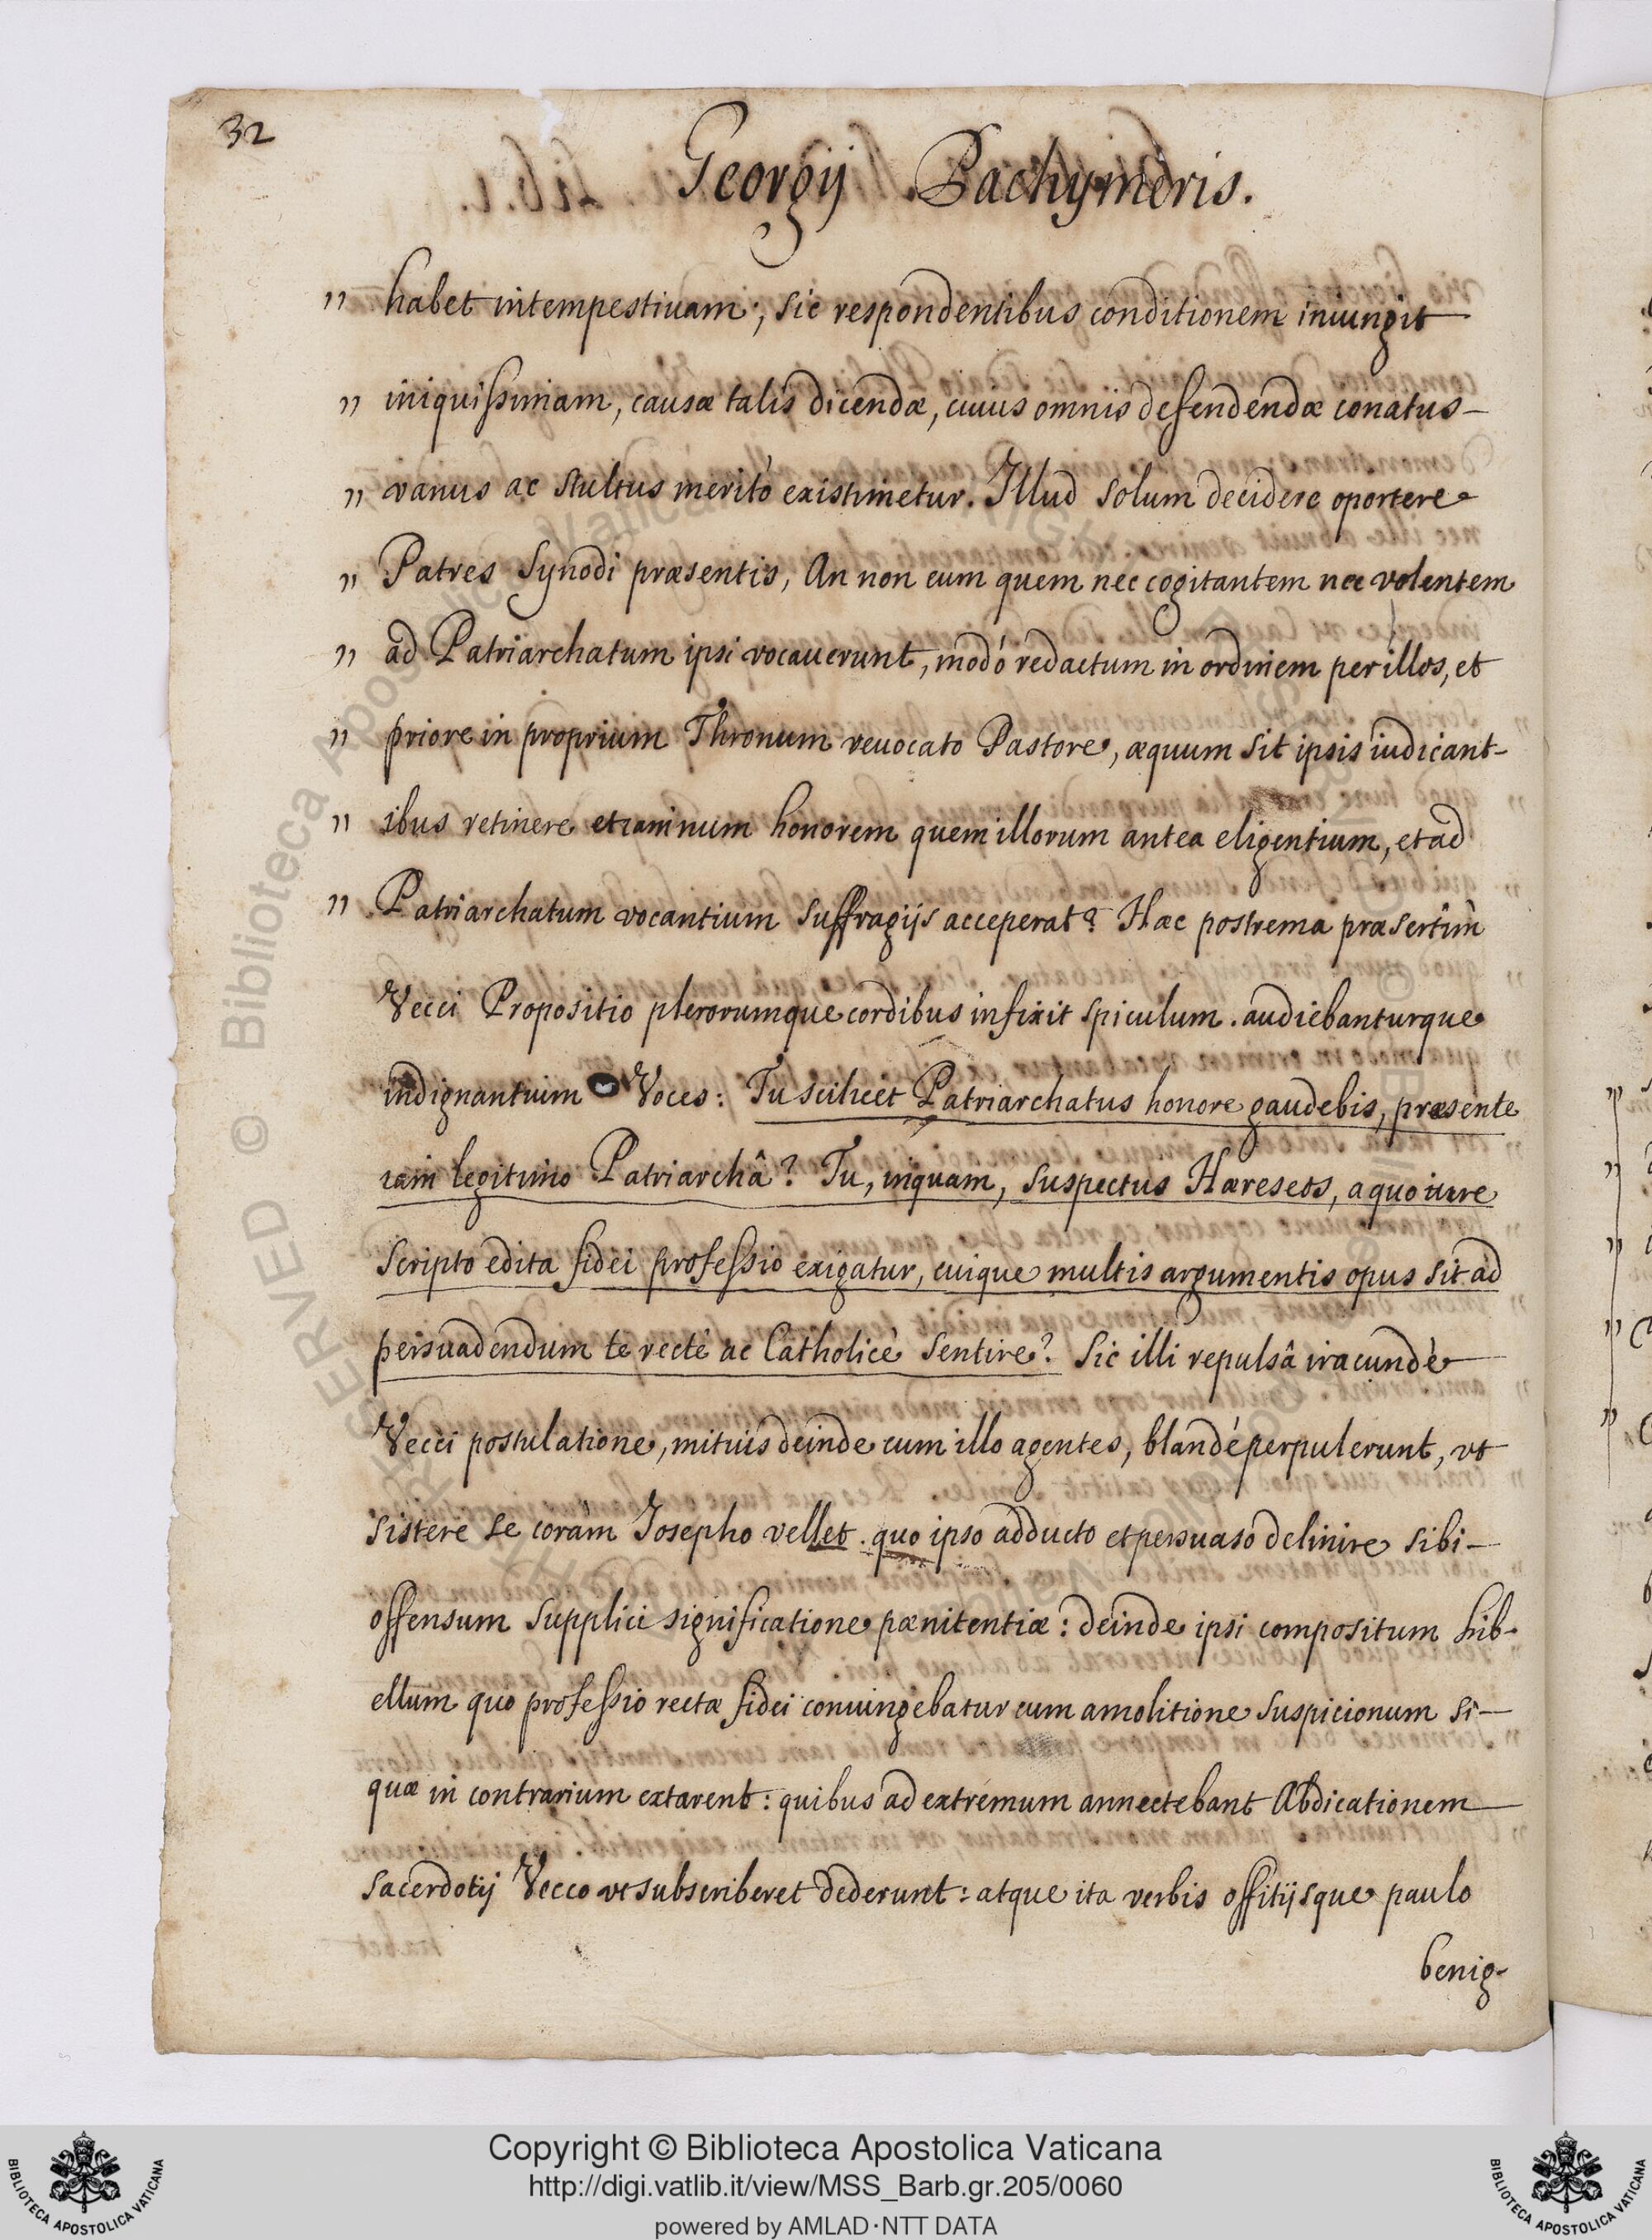 32
Georgij Pachymeris.
" habet intempestiuam; sic respondentibus conditionem iniungit
" iniquissimam, causæ talis dicendæ, cuius omnis defendendæ conatus
" vanus ac stultus meritò existimetur. Illud solum decidere oportere
" Patres Synodi præsentis, An non eum quem nec cogitantem nec volentem
" ad Patriarchatum ipsi vocauerunt, modó redactum in ordinem per illos, et
" priore in proprium Thronum reuocato Pastore, æquum sit ipsis iudicant-
" ibus retinere etiamnum honorem quem illorum antea eligentium, et ad
" Patriarchatum vocantium suffragijs acceperat? Hæc postrema præsertìm
Vecci Propositio plerorumque cordibus infixit spiculum. audiebanturque
indignantuim Voces: Tu scilicet Patriarchatus honore gaudebis, præsente
iam legitimo Patriarchâ? Tu, inquam, suspectus Hæreseos, a quo iure
scripto edita fidei professio exigatur, cuique multis argumentis opus sit ad
persuadendum te recté ac Catholicè sentire? Sic illi repulsâ iracundè
Vecci postulatione, mitius deinde cum illo agentes, blandé perpulerunt, vt
sistere se coràm Josepho vellet. quo ipso adducto et persuaso delinire sibi
offensum supplici significatione pænitentiæ: deinde ipsi compositum lib-
ellum quo professio rectæ fidei coniungebatur cum amolitione suspicionum si
quæ in contrarium extarent: quibus ad extrémum annectebant Abdicationem
sacerdotij Vecco vt subscriberet dederunt: atque ita verbis offitijsque paulo
benig-
Copyright © Biblioteca Apostolica Vaticana
http://digi.vatlib.it/view/MSS_Barb.gr.205/0060
powered by AMLAD·NTT DATA
BIBLIOTECA APOSTOLICA VATICANA
BIBLIOTECA APOSTOLICA VATICANA